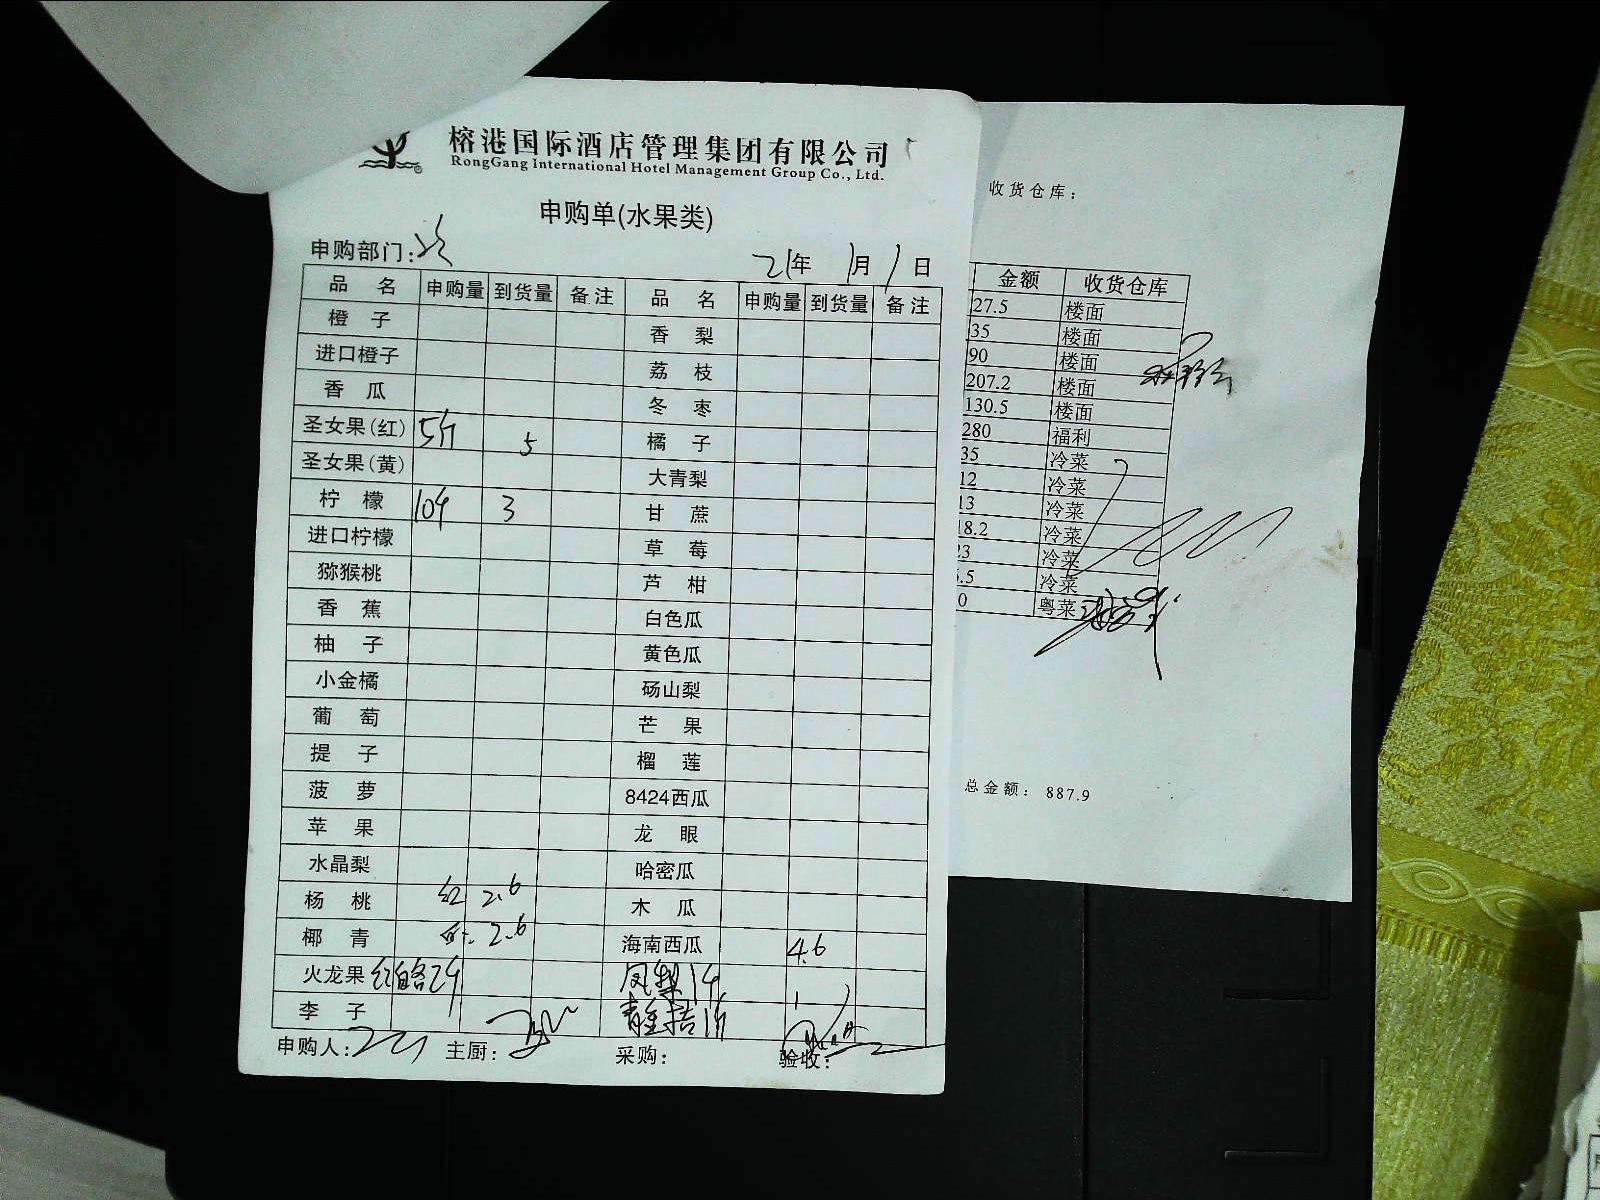 榕港国际酒店管理集团有限公司
RongGang International Hotel Management Group Co., Ltd.
申购单(水果类)
申购部门:冷
21年 1月 1日
品 名 申购量 到货量 备注 品 名 申购量 到货量 备注
橙 子 香 梨
进口橙子 荔 枝
香 瓜 冬 枣
圣女果(红) 5斤 5 橘 子
圣女果(黄) 大青梨
柠 檬 10个 3 甘 蔗
进口柠檬 草 莓
猕猴桃 芦 柑
香 蕉 白色瓜
柚 子 黄色瓜
小金橘 砀山梨
葡 萄 芒 果
提 子 榴 莲
菠 萝 8424西瓜
苹 果 龙 眼
水晶梨 哈密瓜
杨 桃 红 2.6 木 瓜
椰 青 2.6 海南西瓜 4.6
火龙果 红白各2个 凤梨1个
李 子 青金桔1斤 1
申购人: 主厨: 采购: 验收:
收货仓库:
金额 收货仓库
27.5 楼面
35 楼面
90 楼面
207.2 楼面
130.5 楼面
280 福利
35 冷菜
12 冷菜
13 冷菜
18.2 冷菜
23 冷菜
.5 冷菜
0 粤菜
总金额: 887.9